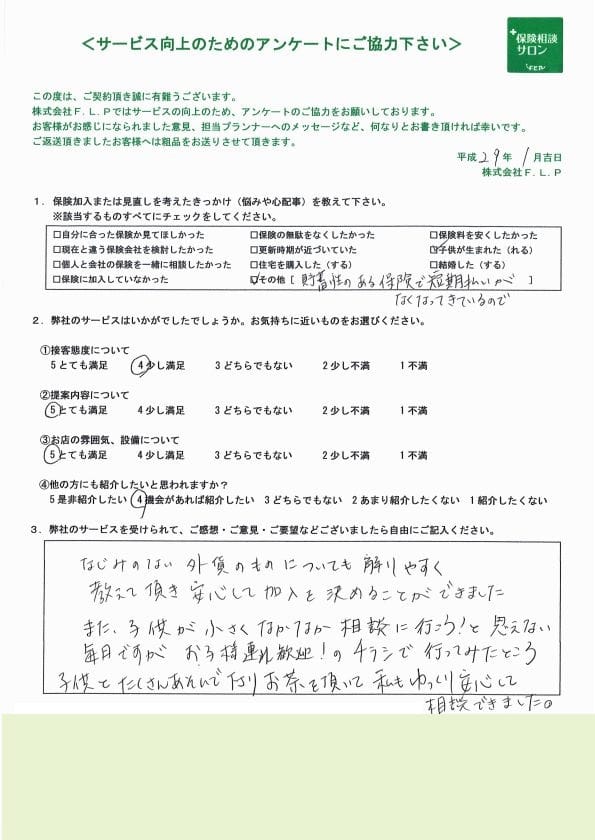 ＜サービス向上のためのアンケートにご協力下さい＞
保険相談
サロン
F.L.P
この度は、ご契約頂き誠に有難うございます。
株式会社Ｆ.Ｌ.Ｐではサービスの向上のため、アンケートのご協力をお願いしております。
お客様がお感じになられました意見、担当プランナーへのメッセージなど、何なりとお書き頂ければ幸いです。
ご返送頂きましたお客様へは粗品をお送りさせて頂きます。
平成 29 年 1 月吉日
株式会社Ｆ.Ｌ.Ｐ
１．保険加入または見直しを考えたきっかけ（悩みや心配事）を教えて下さい。
※該当するものすべてにチェックをしてください。
□自分に合った保険か見てほしかった □保険の無駄をなくしたかった □保険料を安くしたかった
□現在と違う保険会社を検討したかった □更新時期が近づいていた ☑子供が生まれた（れる）
□個人と会社の保険を一緒に相談したかった □住宅を購入した（する） □結婚した（する）
□保険に加入していなかった ☑その他［貯蓄性のある保険で短期払いが ］
なくなってきているので
２．弊社のサービスはいかがでしたでしょうか。お気持ちに近いものをお選びください。
①接客態度について
５とても満足 ４少し満足 ３どちらでもない ２少し不満 １不満
②提案内容について
５とても満足 ４少し満足 ３どちらでもない ２少し不満 １不満
③お店の雰囲気、設備について
５とても満足 ４少し満足 ３どちらでもない ２少し不満 １不満
④他の方にも紹介したいと思われますか？
５是非紹介したい ４機会があれば紹介したい ３どちらでもない ２あまり紹介したくない １紹介したくない
３．弊社のサービスを受けられて、ご感想・ご意見・ご要望などございましたら自由にご記入ください。
なじみのない 外貨のものについても 解りやすく
教えて頂き 安心して加入を決めることができました
また、子供が小さくなかなか相談に行こう!と思えない
毎日ですが お子様連れ歓迎!のチラシで行ってみたところ
子供とたくさんあそんで下さりお茶を頂いて私もゆっくり安心して
相談できました。